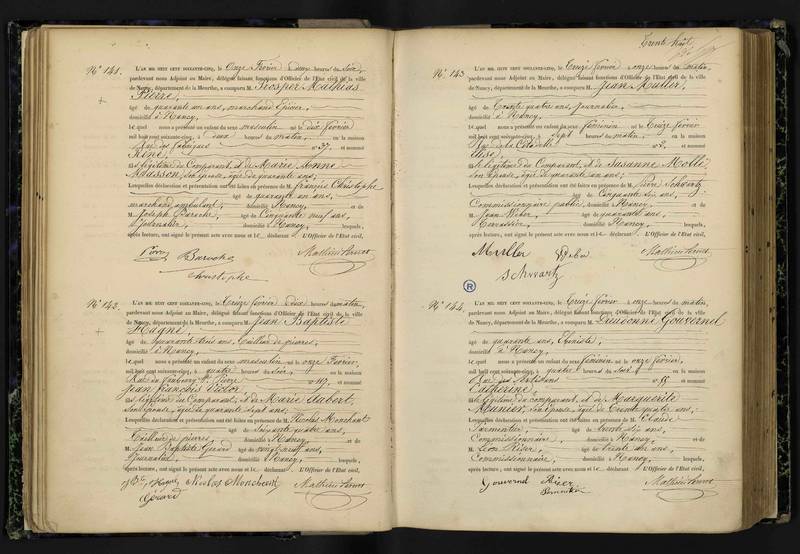 Nº 141.
L'AN MIL HUIT CENT SOIXANTE-CINQ, le Onze Février deux heures du Soir,
pardevant nous Adjoint au Maire, délégué faisant fonctions d'Officier de l'État civil de la ville
de Nancy, département de la Meurthe, a comparu M. Prosper Mathias
Pierre,
âgé de quarante un ans, marchand Épicier,
domicilié à Nancy,
lequel nous a présenté un enfant du sexe masculin né le dix février
mil huit cent soixante-cinq, à deux heures du matin, en la maison
Rue des fabriques nº 37. et nommé
René,
fils légitime du Comparant, et de Marie Anne
Masson, son épouse, âgée de quarante ans;
Lesquelles déclaration et présentation ont été faites en présence de M. françois Christophe
âgé de quarante un ans,
marchand ambulant, domicilié à Nancy, et de
M. Joseph Baroche, âgé de Cinquante neuf ans,
Journalier, domicilié à Nancy, lesquels,
après lecture, ont signé le présent acte avec nous et le déclarant. L'Officier de l'État civil,
Christophe
Nº 142.
L'AN MIL HUIT CENT SOIXANTE-CINQ, le Treize février deux heures du matin,
pardevant nous Adjoint au Maire, délégué faisant fonctions d'Officier de l'État civil de la ville
de Nancy, département de la Meurthe, a comparu M. Jean Baptiste
Hagné,
âgé de quarante trois ans, Tailleur de pierres,
domicilié à Nancy,
lequel nous a présenté un enfant du sexe masculin né le onze Février,
mil huit cent soixante-cinq, à quatre heures du soir, en la maison
Rue du faubourg St Pierre nº 117, et nommé
Jean François Victor
fils légitime du Comparant, et de Marie Aubert,
son épouse, âgée de quarante sept ans;
Lesquelles déclaration et présentation ont été faites en présence de M. Nicolas Monchant
âgé de Soixante quatre ans,
Tailleur de pierres domicilié à Nancy et de
M. Jean Baptiste Gérard âgé de vingt neuf ans,
Journalier, domicilié à Nancy, lesquels,
après lecture, ont signé le présent acte avec nous et le déclarant. L'Officier de l'État civil,
Nicolas
Gérard
Trente huit
Nº 143.
L'AN MIL HUIT CENT SOIXANTE-CINQ, le Treize février onze heures du matin,
pardevant nous Adjoint au Maire, délégué faisant fonctions d'Officier de l'État civil de la ville
de Nancy, département de la Meurthe, a comparu M. Jean Muller,
âgé de Trente quatre ans, Journalier,
domicilié à Nancy,
lequel nous a présenté un enfant du sexe féminin né le Treize février
mil huit cent soixante-cinq, à Sept heures du matin, en la maison
Rue de la Citadelle nº 2, et nommé
fille légitime du Comparant, et de Susanne
son épouse, âgée de quarante un ans;
Lesquelles déclaration et présentation ont été faites en présence de M. Pierre Schwartz
âgé de Cinquante six ans,
Commissionnaire public, domicilié à Nancy, et de
M. Jean Weber âgé de quarante ans,
Terrassier, domicilié à Nancy, lesquels,
après lecture, ont signé le présent acte avec nous et le déclarant. L'Officier de l'État civil,
Muller Weber
Schwartz
R
Nº 144.
L'AN MIL HUIT CENT SOIXANTE-CINQ, le Treize février à onze heures du matin,
pardevant nous Adjoint au Maire, délégué faisant fonctions d'Officier de l'État civil de la ville
de Nancy, département de la Meurthe, a comparu M. Dieudonné Gouvernel
âgé de quarante ans, Ébéniste,
domicilié à Nancy,
lequel nous a présenté un enfant du sexe féminin né le onze février,
mil huit cent soixante-cinq, à quatre heures du soir, en la maison
Rue des Artisans nº 55 et nommé
Catherine,
fille légitime du comparant, et de Marguerite
Munier, son épouse, âgée de Trente quatre ans;
Lesquelles déclaration et présentation ont été faites en présence de M. Claude
Parmentier, âgé de trente six ans,
Commissionnaire, domicilié à Nancy, et de
M. Léon Riser, âgé de trente un ans,
Commissionnaire, domicilié à Nancy, lesquels,
après lecture, ont signé le présent acte avec nous et le déclarant. L'Officier de l'État civil,
Gouvernel Riser